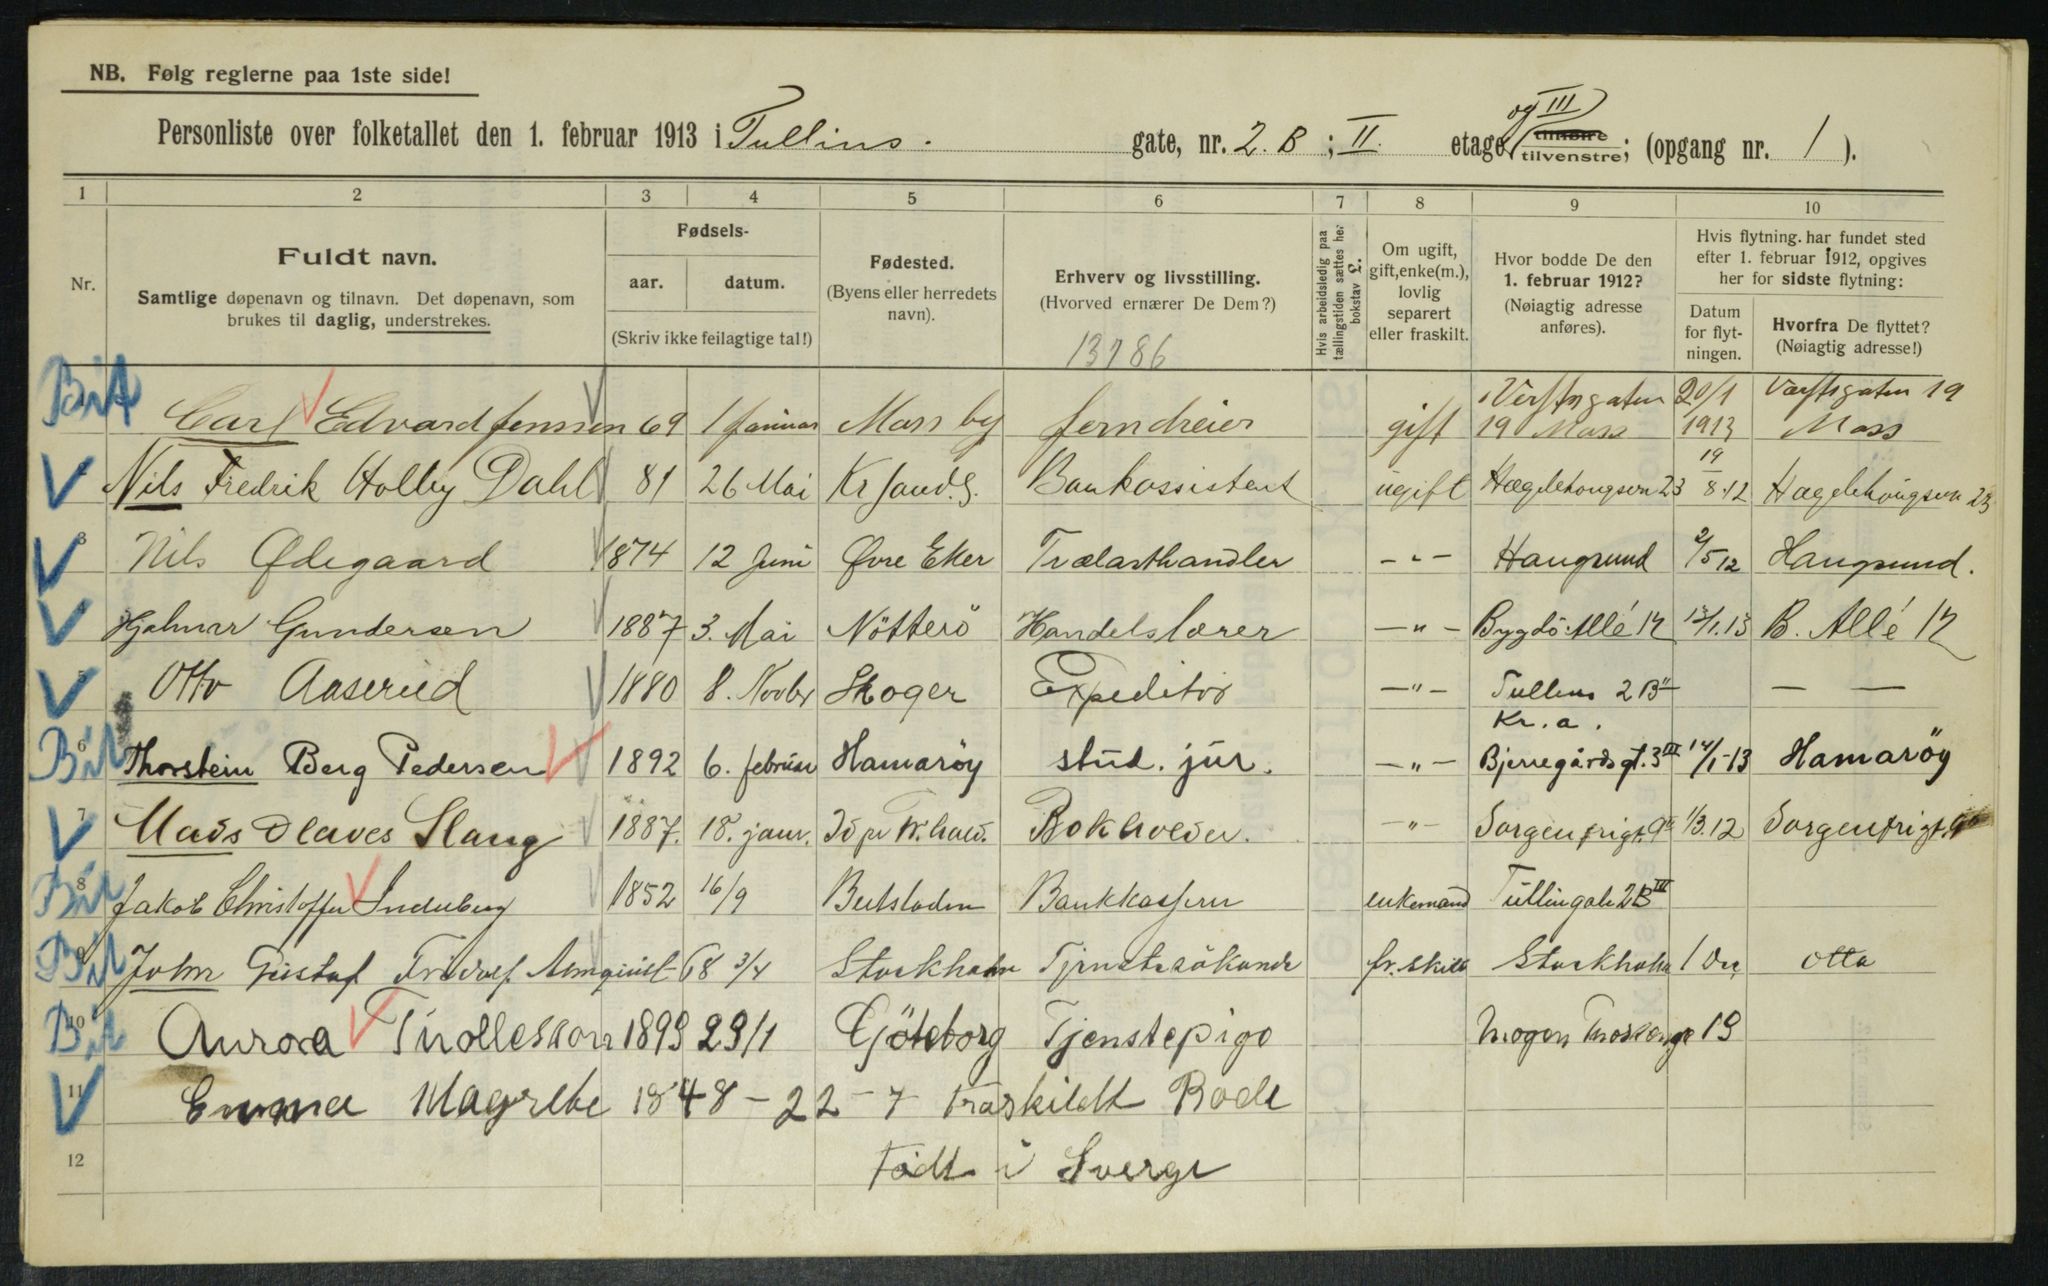 NB. Følg reglerne paa 1ste side!
Personliste over folketallet den 1. februar 1913 i Tullins. gate, nr. 2 B ; II. etage og III tilhøire tilvenstre; (opgang nr. 1 ).
1 2 3 4 5 6 7 8 9 10
Nr.
Fuldt navn.
Samtlige døpenavn og tilnavn. Det døpenavn, som
brukes til daglig, understrekes.
Fødsels-
aar. datum.
(Skriv ikke feilagtige tal!)
Fødested.
(Byens eller herredets
navn).
Erhverv og livsstilling.
(Hvorved ernærer De Dem?)
13786
Hvis arbeidsledig paa
tællingstiden sættes her
bokstav £.
Om ugift,
gift, enke(m.),
lovlig
separert
eller fraskilt.
Hvor bodde De den
1. februar 1912?
(Nøiagtig adresse
anføres).
Hvis flytning. har fundet sted
efter 1. februar 1912, opgives
her for sidste flytning:
Datum
for flyt-
ningen.
Hvorfra De flyttet?
(Nøiagtig adresse!)
Carl Edvard Jenssen 69 1 Januar Moss by Jerndreier gift Verftsgaten 19 Moss 20/1 1913 Værftsgaten 19 Moss
Nils Fredrik Holby Dahl 81 26 Mai Kr sand. S. Bankassistent ugift Hægdehaugsvn 23 19/8.12 Hægdehaugsvn 23
3 Nils Ødegaard 1874 12 Juni Øvre Eker Trælasthandler -"- Haugsund 2/5 12 Haugsund.
Hjalmar Gundersen 1887 3. Mai Nötterö Handelslærer -"- Bygdö Allé 12 13/1.13 B. Allé 12
5 Otto Aaserud 1880 8. Novbr Skoger Expeditör -"- Tullins 2 B II — —
6 Thorstein Berg Pedersen 1892 6. februar Hamaröy stud. jur. -"- Kr.a. Bjerregårdsgt. 3 III 14/1-13 Hamaröy
7 Mads Olaves Slang 1887. 18. janr. Id pr Fr.hald. Bokholder. -"- Sorgenfrigt. 9 II 1/3.12 Sorgenfrigt. 9
8 Jakob Christoffer Inderberg 1852 16/9 Beitstaden Bankkasserer enkemand Tullingate 2B III
9 John Gustaf Fridolf Almquist 68 3/4 Stockholm Tjenstesökande fr. skilt Stockholm 1 Otta
10 Aurora Thollesson 1893 29/1 Göteborg Tjenstepige Mogens Thorsensgt 19
11 Emma Magrete 1848 - 22 - 7 Fraskildt Bode
12 Född i Sverge